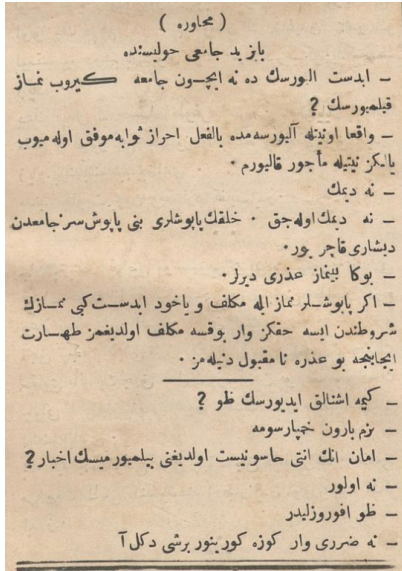 ( محاوره )
بایزید جامعی حولیسنده
– ابدست الورسك ده نه ایچـون جامعه كیروب نمـاز
قیلمیورسك ?
– واقعا اونیتله آلیورسه‌مده بالفعل احراز ثوابه موفق اوله‌میوب
یالكز نیتیله مأجور قالیورم ٠
– نه دیمك
– نه دیمك اوله‌جق ٠ خلقك پاپوشلری بنی پاپوش‌سز جامعدن
دیشاری قاچریور٠
– بوكا بینماز عذری دیرلر٠
– اكر پاپوشـلر نماز ایله مكلف و یاخود ابدسـت كبی نمـازك
شروطندن ایسه حقكز وار یوقسه مكلف اولدیغمز طهـارت
ایجابنجه بو عذره نا مقبول دنیله‌مز ٠
– كیمه اشنالق ایدیورسك ظو ?
– بزم بارون خمپارسومه
– امان انك انتی حاسونیست اولدیغنی بیلمیور میسك اخبار?
– نه اولور
– ظو افوروزلیدر
– نه ضرری وار كوزه كورینور برشی دكل آ